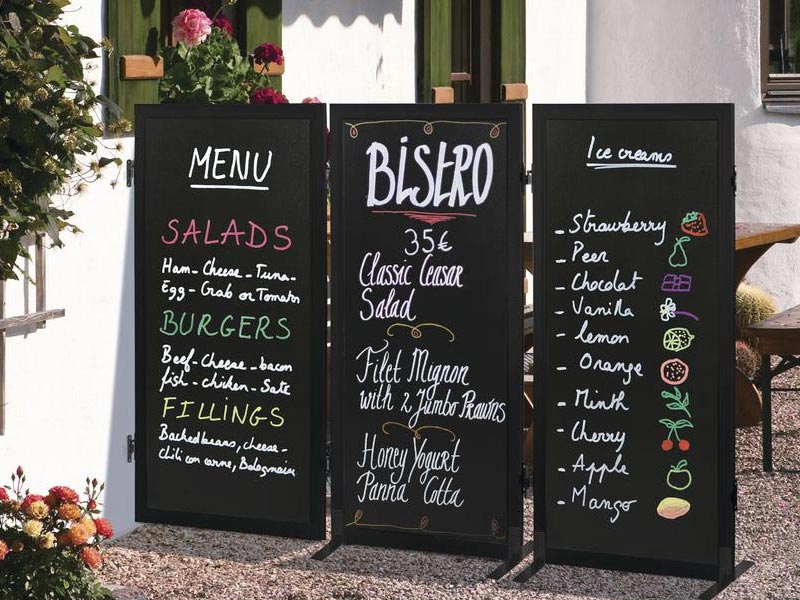 MENU
SALADS
Ham - Cheese - Tuna -
Egg - Crab or Tomatos
BURGERS
Beef - Cheese - bacon
fish - chicken - Sate
FILLINGS
Backed beans, cheese -
chili con carne, Bolognaise
BISTRO
35€
Classic Ceasar
Salad
Filet Mignon
with 2 Jumbo Prawns
Honey Yogurt
Panna Cotta
Ice creams
- Strawberry
- Peer
- Chocolat
- Vanilla
- lemon
- Orange
- Minth
- Cherry
- Apple
- Mango